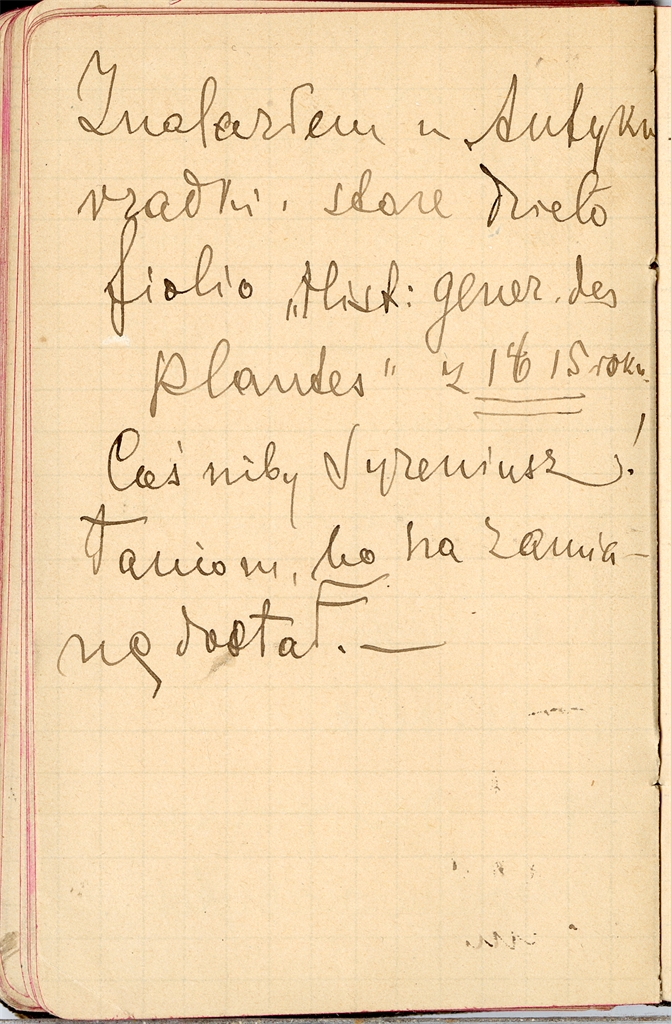 Znalazłem u Antykw
rzadki. stare dzieło
fiolio „Hist: gener. des
plantes" z 1615 roku.
Coś niby Syreniusz!
Taniom, bo na zamia-
nę dostał. —